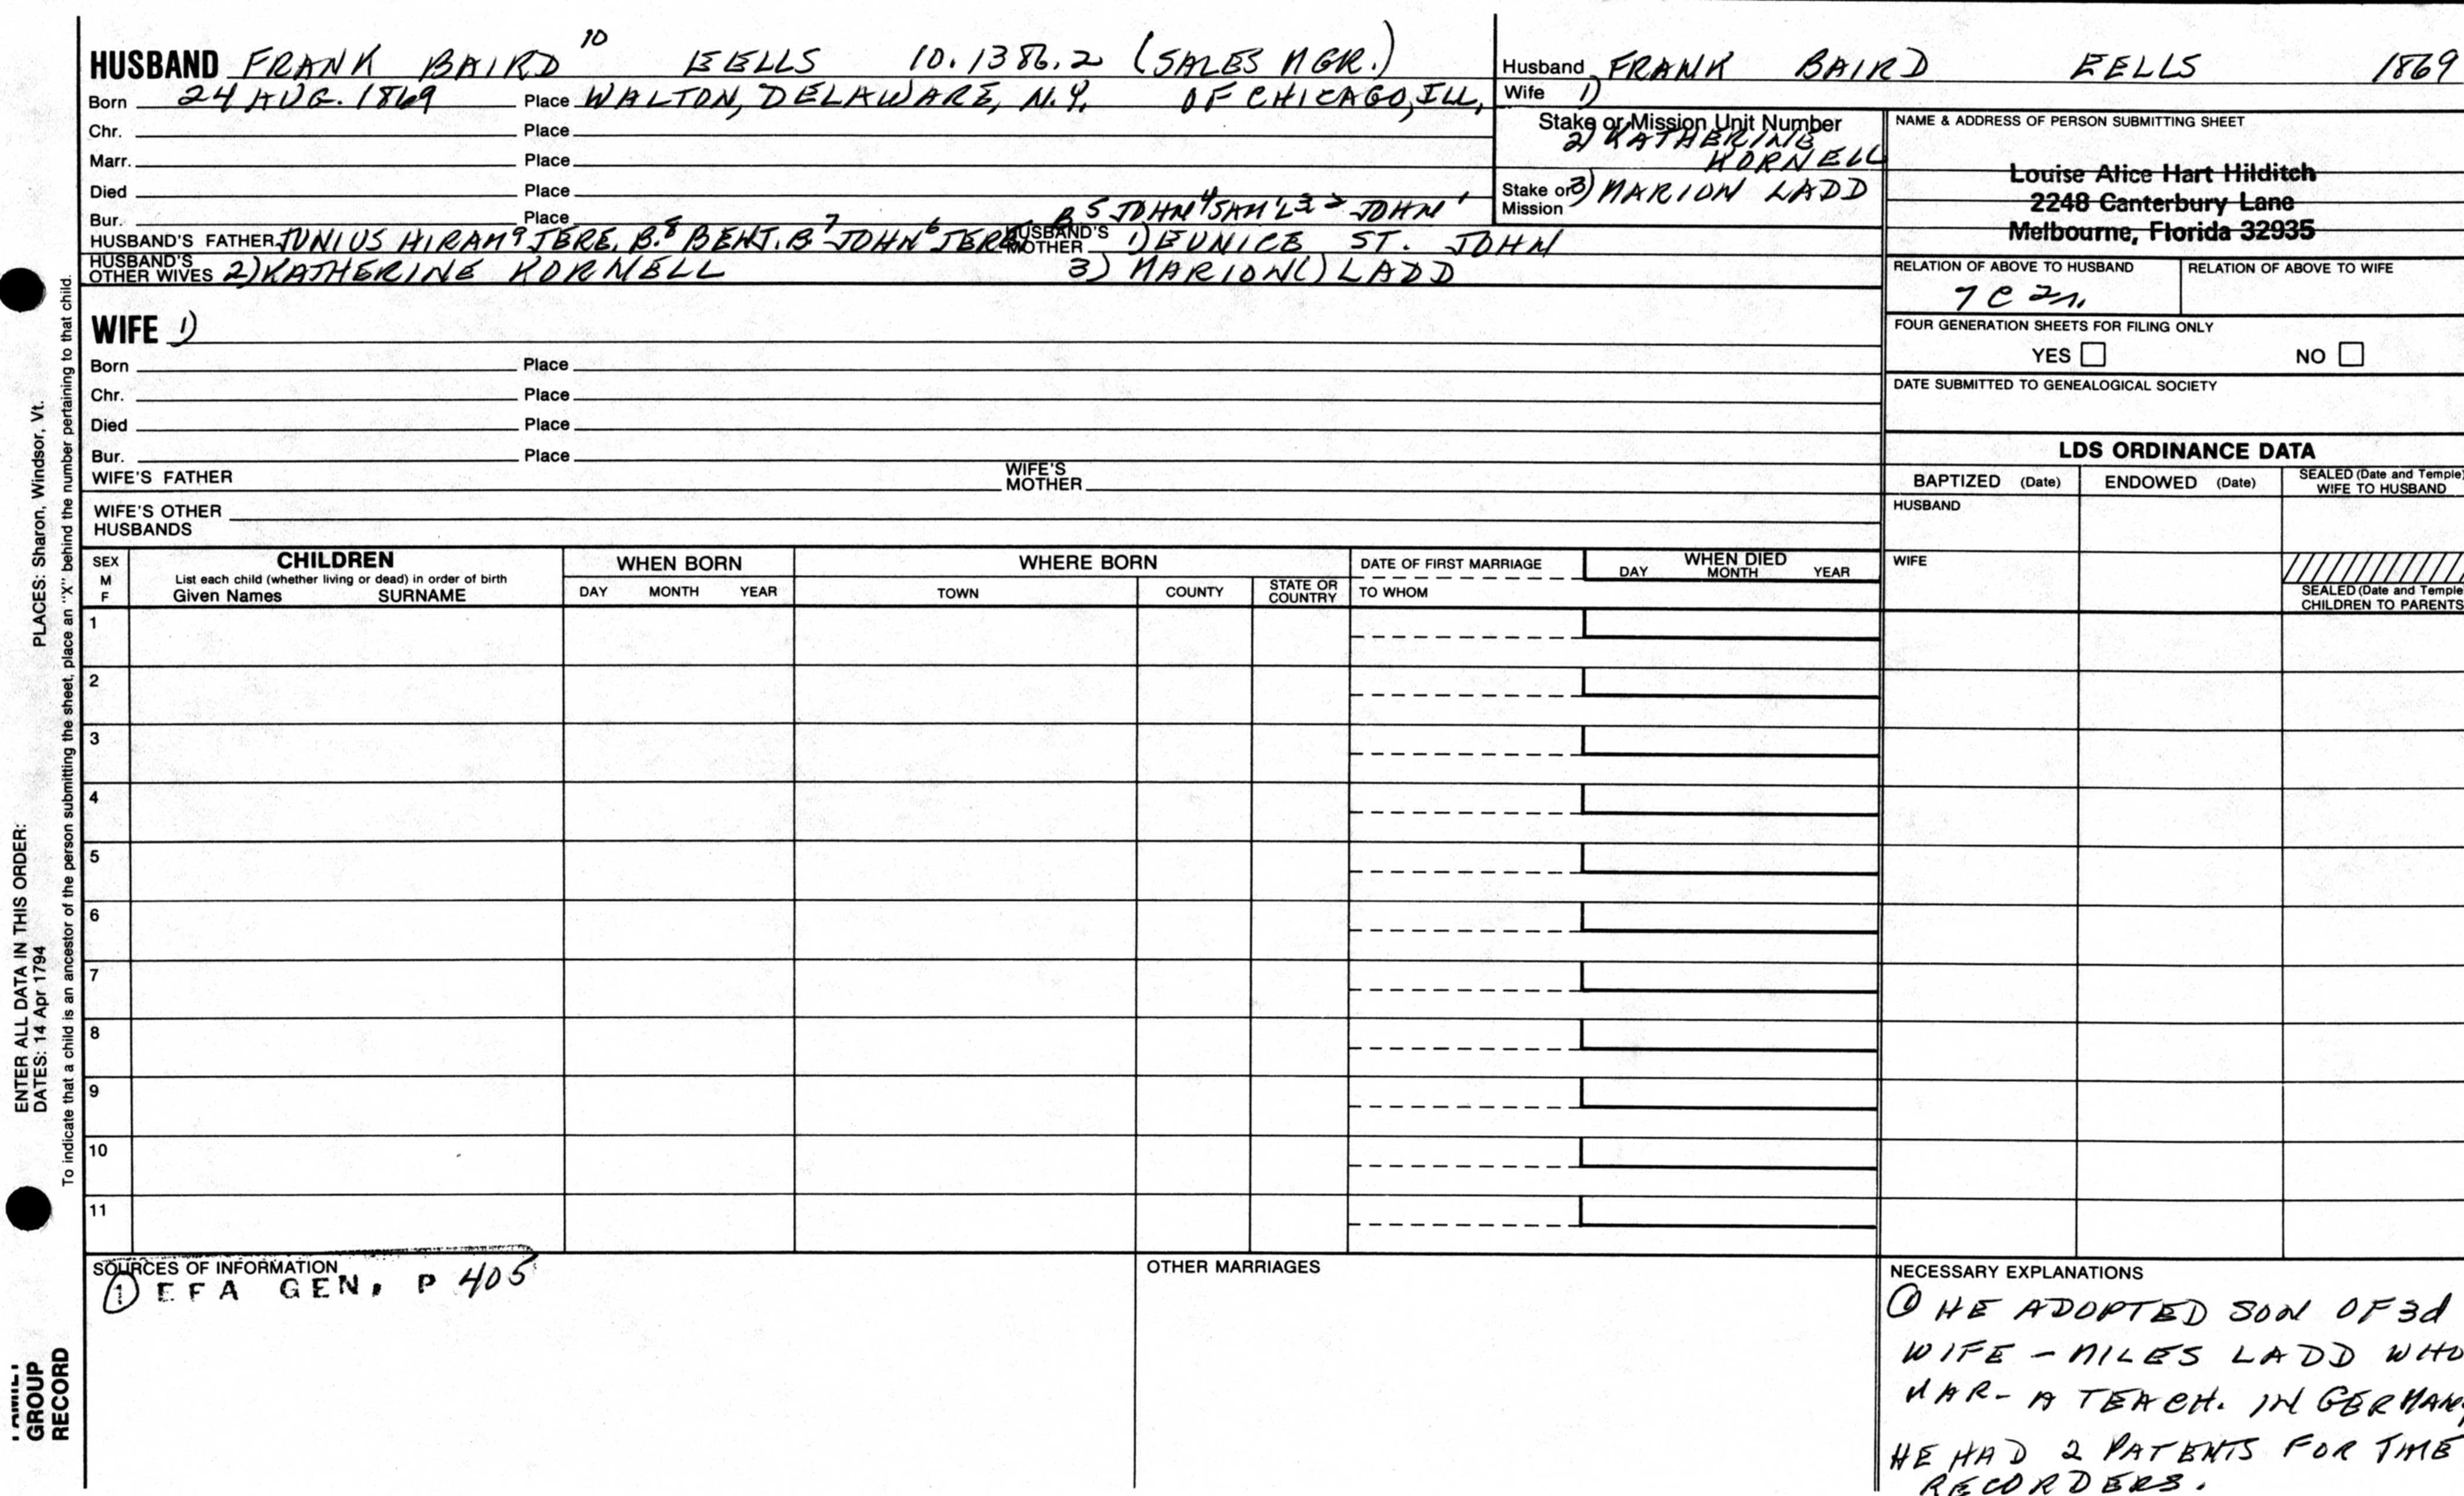 HUSBAND FRANK BAIRD 10 EELLS 10.1386.2 (SALES MGR.)
Born 24 AUG. 1869 Place WALTON, DELAWARE, N.Y. OF CHICAGO, ILL,
Chr. Place
Marr. Place
Died Place
Bur. Place B 5 JOHN 4 SAM'L 3 2 JOHN 1
HUSBAND'S FATHER JUNIUS HIRAM 9 JERE. B. 8 BENJ. B. 7 JOHN 6 JERE HUSBAND'S MOTHER 1) EUNICE ST. JOHN
HUSBAND'S OTHER WIVES 2) KATHERINE KORNELL 3) MARION ( ) LADD
WIFE 1)
Born Place
Chr. Place
Died Place
Bur. Place
WIFE'S FATHER WIFE'S MOTHER
WIFE'S OTHER HUSBANDS
Husband FRANK BAIRD EELLS 1869
Wife 1)
Stake or Mission Unit Number
2) KATHERINE
KORNELL
Stake or Mission 3) MARION LADD
NAME & ADDRESS OF PERSON SUBMITTING SHEET
Louise Alice Hart Hilditch
2248 Canterbury Lane
Melbourne, Florida 32935
RELATION OF ABOVE TO HUSBAND RELATION OF ABOVE TO WIFE
7 C 2r.
FOUR GENERATION SHEETS FOR FILING ONLY
YES NO
DATE SUBMITTED TO GENEALOGICAL SOCIETY
LDS ORDINANCE DATA
BAPTIZED (Date) ENDOWED (Date) SEALED (Date and Temple)
WIFE TO HUSBAND
HUSBAND
WIFE
SEALED (Date and Temple
CHILDREN TO PARENTS
SEX
M
F
CHILDREN
List each child (whether living or dead) in order of birth
Given Names SURNAME
WHEN BORN
DAY MONTH YEAR
WHERE BORN
TOWN COUNTY STATE OR COUNTRY
DATE OF FIRST MARRIAGE
TO WHOM
WHEN DIED
DAY MONTH YEAR
1
2
3
4
5
6
7
8
9
10
11
SOURCES OF INFORMATION
1 EFA GEN, P 405
OTHER MARRIAGES
NECESSARY EXPLANATIONS
1 HE ADOPTED SON OF 3d
WIFE - MILES LADD WHO
MAR- A TEACH. IN GERMAN
HE HAD 2 PATENTS FOR TIME
RECORDERS.
PLACES: Sharon, Windsor, Vt.
ENTER ALL DATA IN THIS ORDER:
DATES: 14 Apr 1794
To indicate that a child is an ancestor of the person submitting the sheet, place an "X" behind the number pertaining to that child.
FAMILY
GROUP
RECORD